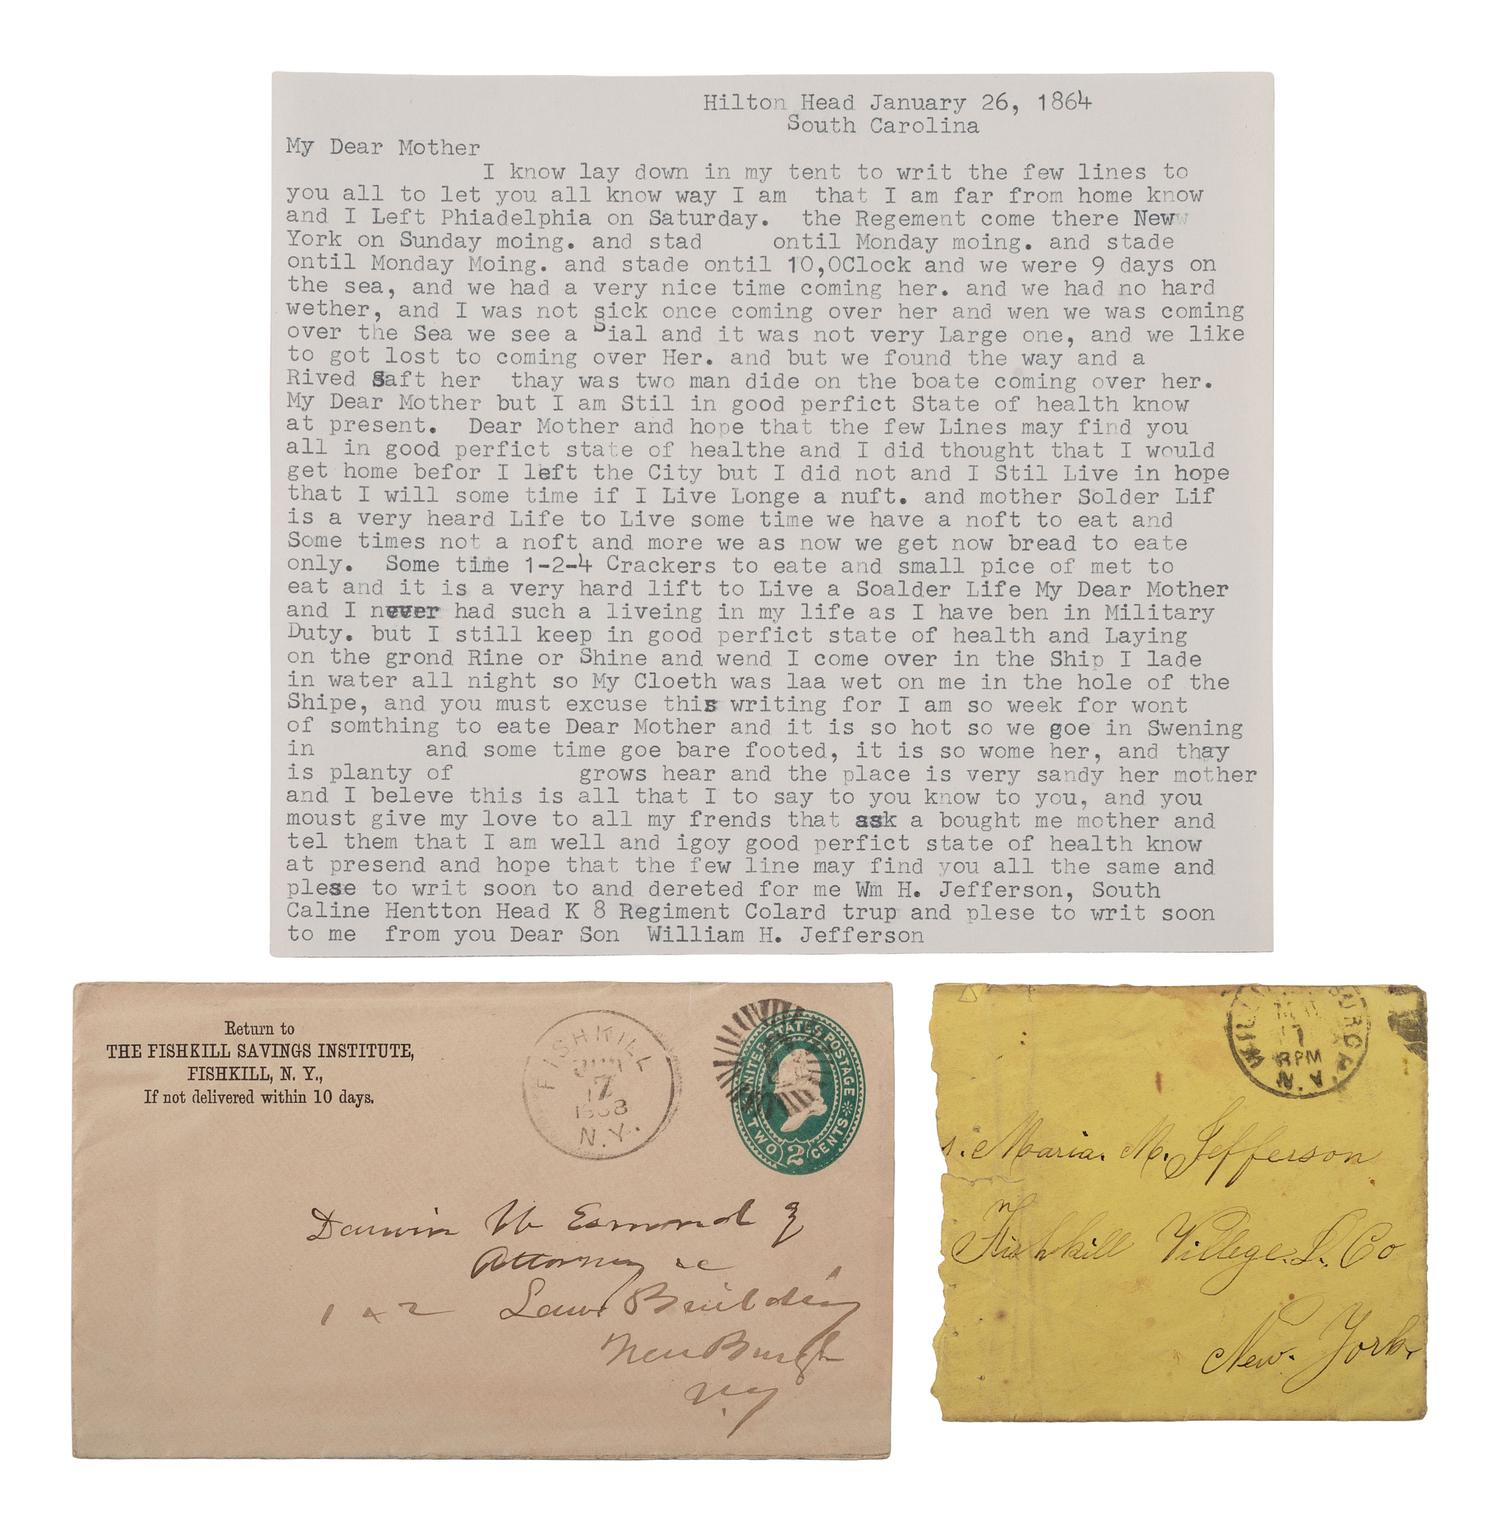 Hilton Head January 26, 1864
South Carolina
My Dear Mother
I know lay down in my tent to writ the few lines to
you all to let you all know way I am that I am far from home know
and I Left Phiadelphia on Saturday. the Regement come there New
York on Sunday moing. and stad ontil Monday moing. and stade
ontil Monday Moing. and stade ontil 10,0Clock and we were 9 days on
the sea, and we had a very nice time coming her. and we had no hard
wether, and I was not sick once coming over her and wen we was coming
over the Sea we see a Sial and it was not very Large one, and we like
to got lost to coming over Her. and but we found the way and a
Rived Saft her thay was two man dide on the boate coming over her.
My Dear Mother but I am Stil in good perfict State of health know
at present. Dear Mother and hope that the few Lines may find you
all in good perfict state of healthe and I did thought that I would
get home befor I left the City but I did not and I Stil Live in hope
that I will some time if I Live Longe a nuft. and mother Solder Lif
is a very heard Life to Live some time we have a noft to eat and
Some times not a noft and more we as now we get now bread to eate
only. Some time 1-2-4 Crackers to eate and small pice of met to
eat and it is a very hard lift to Live a Soalder Life My Dear Mother
and I never had such a liveing in my life as I have ben in Military
Duty. but I still keep in good perfict state of health and Laying
on the grond Rine or Shine and wend I come over in the Ship I lade
in water all night so My Cloeth was laa wet on me in the hole of the
Shipe, and you must excuse this writing for I am so week for wont
of somthing to eate Dear Mother and it is so hot so we goe in Swening
in and some time goe bare footed, it is so wome her, and thay
is planty of grows hear and the place is very sandy her mother
and I beleve this is all that I to say to you know to you, and you
moust give my love to all my frends that ask a bought me mother and
tel them that I am well and igoy good perfict state of health know
at presend and hope that the few line may find you all the same and
plese to writ soon to and dereted for me Wm H. Jefferson, South
Caline Hentton Head K 8 Regiment Colard trup and plese to writ soon
to me from you Dear Son William H. Jefferson
Return to
THE FISHKILL SAVINGS INSTITUTE,
FISHKILL, N. Y.,
If not delivered within 10 days.
FISHKILL
7
N.Y.
UNITED STATES POSTAGE
TWO 2 CENTS
Darwin W Esmond
Attorney &c
1 & 2 Law Building
NewBurgh
NY
7
PM
Maria. M. Jefferson
Fishkill Villege. Co
New. York.